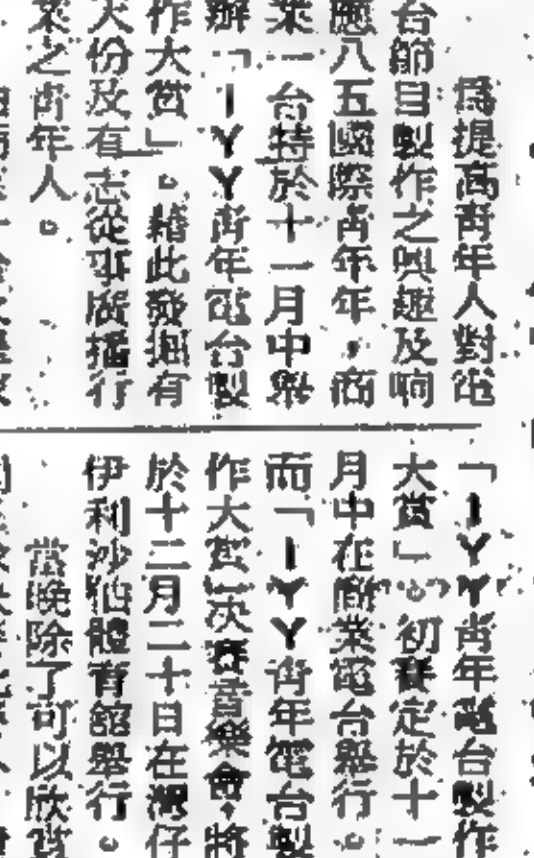 為提高青年人對電
台節目製作之興趣及响
應八五國際青年年，商
業一台特於十一月中舉
辦「IYY青年電台製
作大賞」。藉此發掘有
大份及有志從事廣播行
業之青年人。
「IYY青年電台製作
大賞」。初賽定於十一
月中在商業電台舉行。
而「IYY青年電台製
作大賞」決賽音樂會，將
於十二月二十日在灣仔
伊利沙伯體育館舉行。
當晚除了可以欣賞